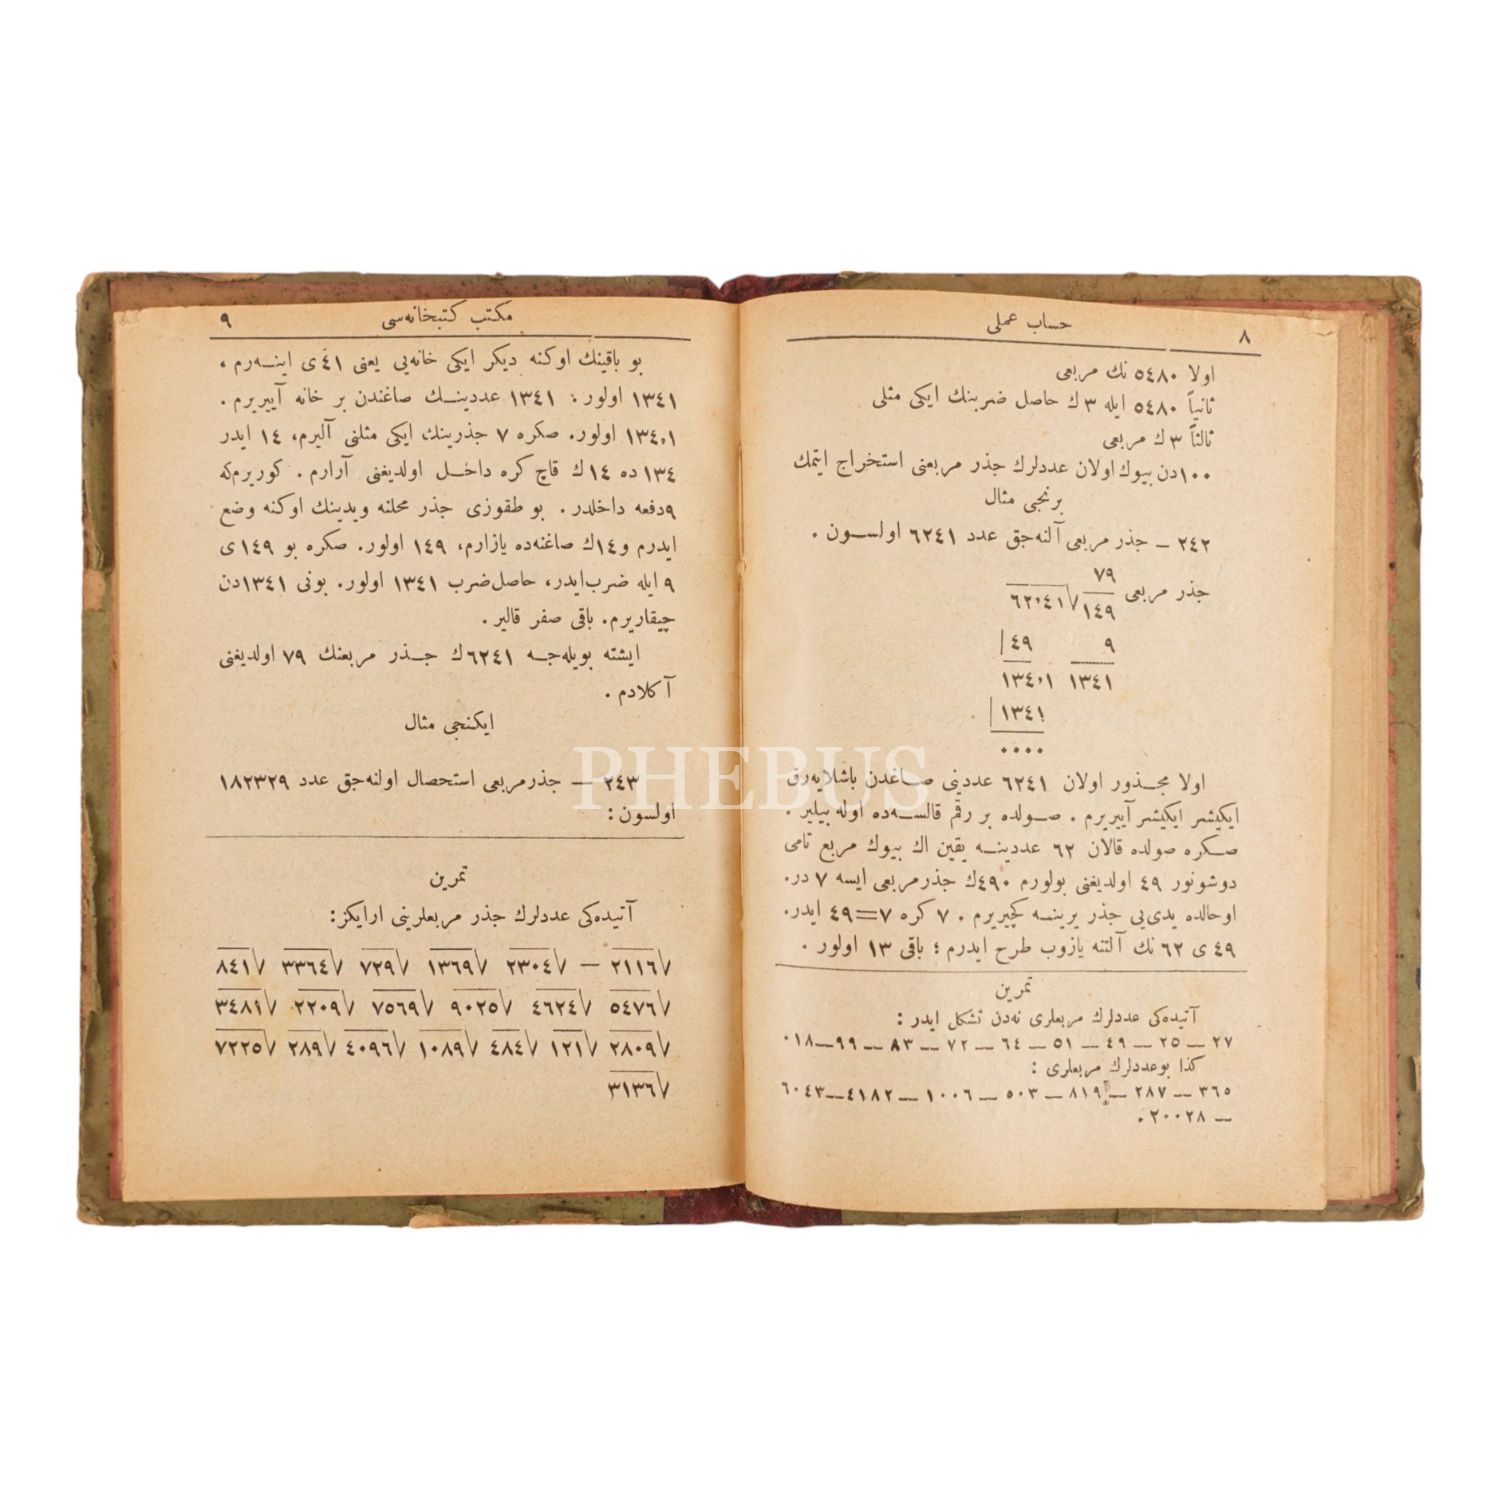 ٨
حساب عملی
اولا ٥٤٨٠ نك مربعی
ثانیاً ٥٤٨٠ ایله ٣ك حاصل ضربنك ایكی مثلی
ثالثاً ٣ك مربعی
١٠٠دن بیوك اولان عددلرك جذر مربعنی استخراج ایتمك
برنجی مثال
٢٤٢ — جذر مربعی آلنه‌جق عدد ٦٢٤١ اولسون .
جذر مربعی ٧٩ √٦٢٬٤١
١٤٩
٩ ٤٩
١٣٤١ ١٣٤٬١
١٣٤١
٠٠٠٠
اولا مجذور اولان ٦٢٤١ عددینی صاغدن باشلایه‌رق
ایكیشر ایكیشر آییریرم . صولده بر رقم قالسه‌ده اوله بیلیر .
صكره صولده قالان ٦٢ عددینه یقین اك بیوك مربع تامی
دوشونور ٤٩ اولدیغنی بولورم ٤٩٠ك جذرمربعی ایسه ٧ در.
اوحالده یدی‌یی جذر یرینه كچیریرم . ٧ كره ٧=٤٩ ایدر.
٤٩ ی ٦٢ نك آلتنه یازوب طرح ایدرم ؛ باقی ١٣ اولور .
تمرین
آتیده‌كی عددلرك مربعلری نه‌دن تشكل ایدر :
٢٧ — ٢٥ — ٤٩ — ٥١ — ٦٤ — ٧٢ — ٨٣ — ٩٩ — ٠١٨
كذا بوعددلرك مربعلری :
٣٦٥ — ٢٨٧ — ٨١٩ — ٥٠٣ — ١٠٠٦ — ٤١٨٢ — ٦٠٤٣
— ٢٠٠٢٨ .
مكتب كتبخانه‌سی
٩
بو باقینك اوكنه دیكر ایكی خانه‌یی یعنی ٤١ی اینه‌رم ،
١٣٤١ اولور : ١٣٤١ عددینك صاغندن بر خانه آییریرم .
١٣٤٬١ اولور. صكره ٧ جذرینك ایكی مثلنی آلیرم، ١٤ ایدر
١٣٤ ده ١٤ك قاچ كره داخل اولدیغنی آرارم . كوریرم‌كه
٩دفعه داخلدر . بو طقوزی جذر محلنه ویدینك اوكنه وضع
ایدرم و١٤ك صاغنه‌ده یازارم، ١٤٩ اولور. صكره بو ١٤٩ی
٩ ایله ضرب‌ایدر، حاصل‌ضرب ١٣٤١ اولور. بونی ١٣٤١دن
چیقاریرم. باقی صفر قالیر .
ایشته بویله‌جه ٦٢٤١ك جذر مربعنك ٧٩ اولدیغنی
آكلادم .
ایكنجی مثال
٢٤٣ — جذرمربعی استحصال اولنه‌جق عدد ١٨٢٣٢٩
اولسون :
تمرین
آتیده‌كی عددلرك جذر مربعلرینی ارایكز :
√٢١١٦ — √٢٣٠٤ √١٣٦٩ √٧٢٩ √٣٣٦٤ √٨٤١
√٥٤٧٦ √٤٦٢٤ √٩٠٢٥ √٧٥٦٩ √٢٢٠٩ √٣٤٨١
√٢٨٠٩ √١٢١ √٤٨٤ √١٠٨٩ √٤٠٩٦ √٢٨٩ √٧٢٢٥
√٣١٣٦
PHEBUS